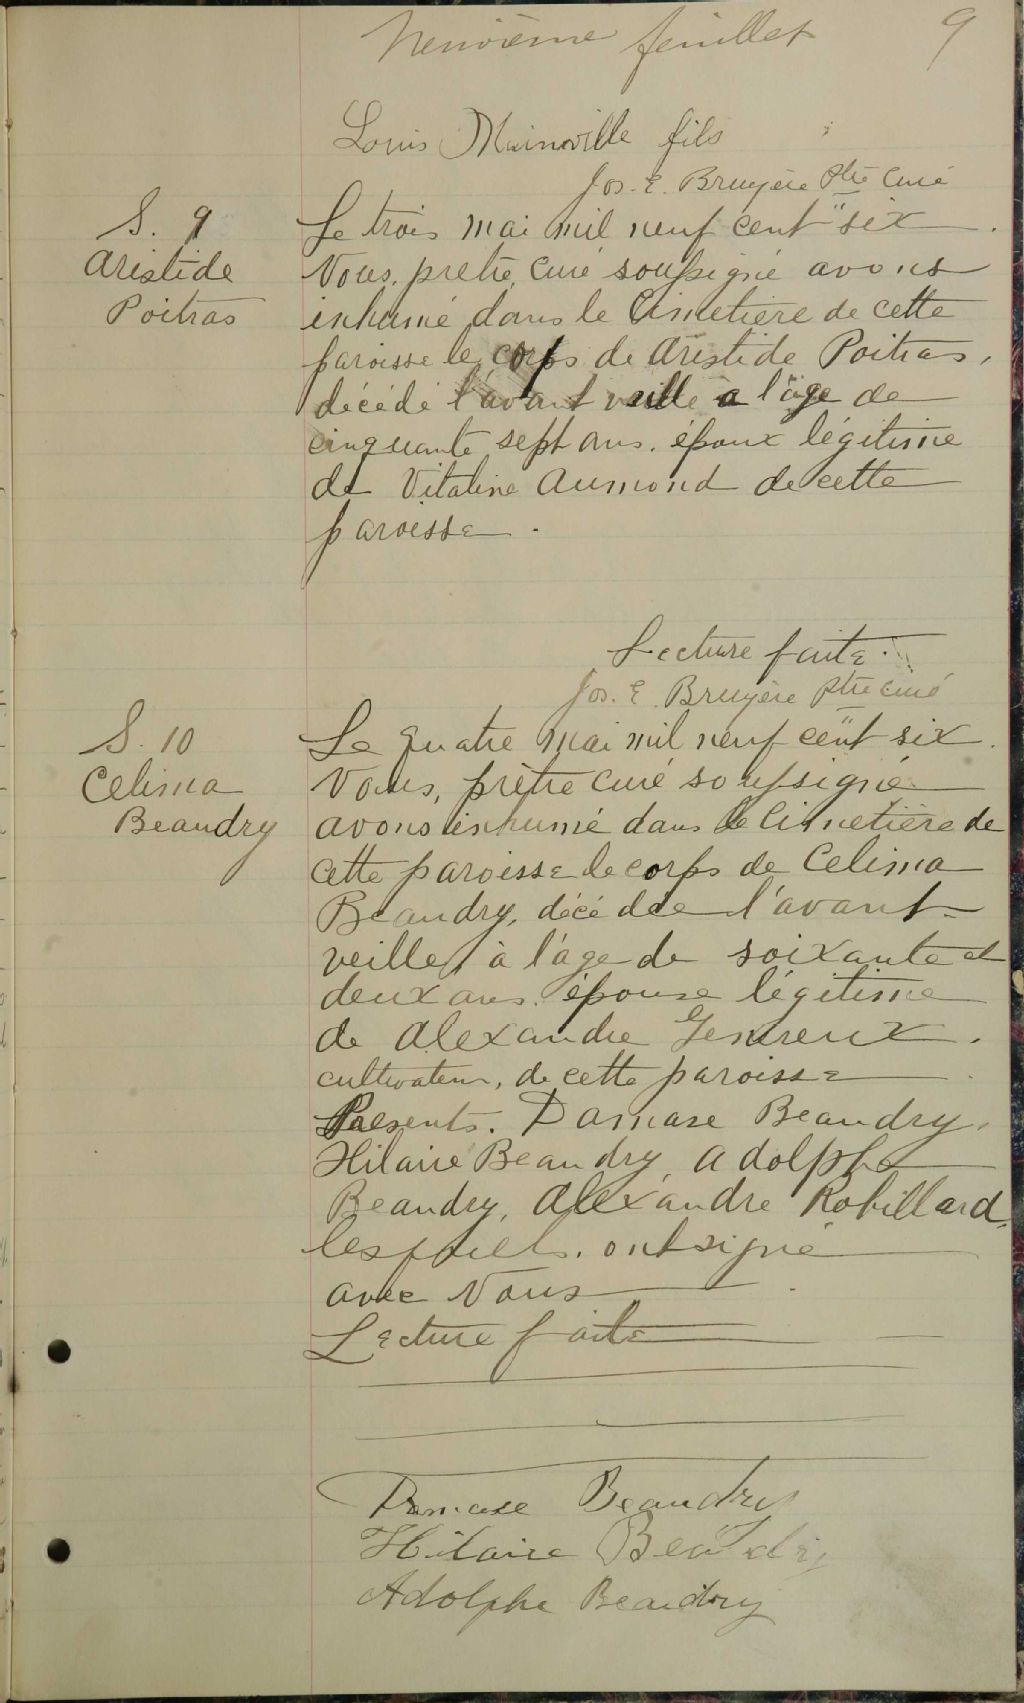 Neuvième feuillet 9
Louis Mainville fils
Jos. E. Bruyère Ptre Curé
S. 9
Aristide
Poitras
Le trois mai mil neuf cent six
Nous, prêtre, curé soussigné avons
inhumé dans le Cimetière de cette
paroisse le corps de Aristide Poitras,
décédé l'avant veille a l'âge de
cinquante sept ans, époux légitime
de Vitaline Aumond de cette
paroisse.
Lecture faite.
Jos. E. Bruyère Ptre curé
S. 10
Celima
Beaudry
Le quatre mai mil neuf cent six
Nous, prêtre curé soussigné
avons inhumé dans le Cimetière de
cette paroisse le corps de Celima
Beaudry, décédée l'avant-
veille, à l'âge de soixante et
deux ans. épouse légitime
de Alexandre Genereux.
cultivateur, de cette paroisse
Présents. Damase Beaudry,
Hilaire Beaudry, Adolphe
Beaudry, Alexandre Robillard,
lesquels. ont signé
avec Nous
Lecture faite
Damase Beaudry
Hilaire Beaudry
Adolphe Beaudry